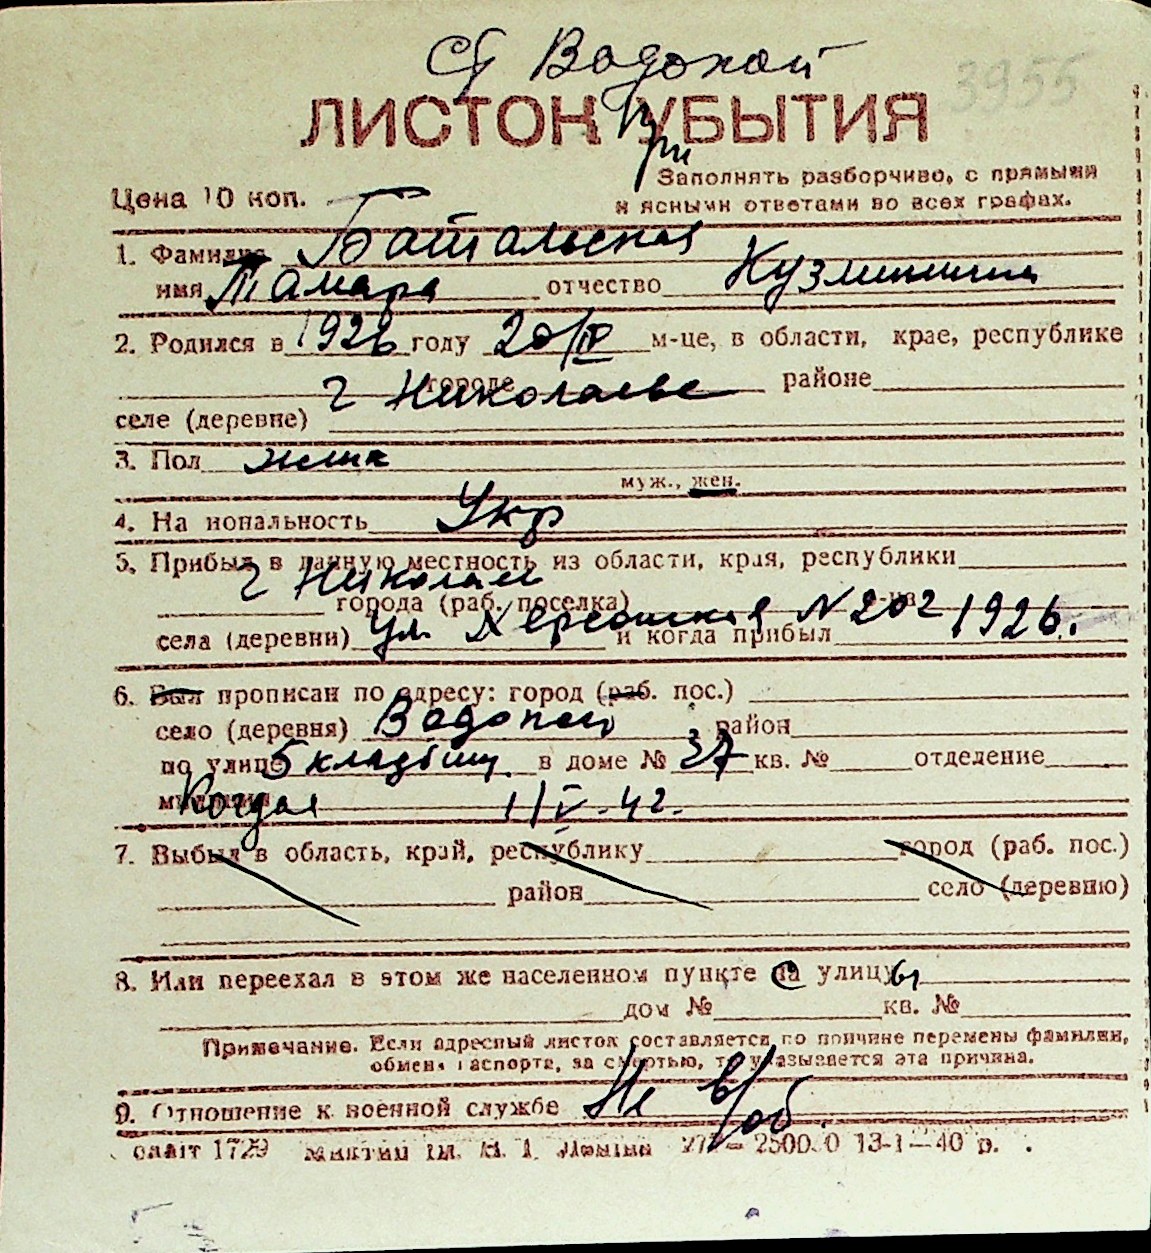 Ст Водопой
3955
ЛИСТОК УБЫТИЯ
При
Заполнять разборчиво, с прямыми
и ясными ответами во всех графах.
Цена 10 коп.
1. Фамилия Батальская
имя Тамара отчество Кузминична
2. Родился в 1926 году 20/IV м-це, в области, крае, республике
городе г Николаеве районе
селе (деревне)
3. Пол женск
муж., жен.
4. На иональность Укр
5. Прибыл в данную местность из области, края, республики
г Николаев
города (раб. поселка) р-на
села (деревни) ул. Херсонская N 202 и когда прибыл 1926.
6. Был прописан по адресу: город (раб. пос.)
село (деревня) Водопой район
по улице 5 кладбищ в доме № 37 кв. № отделение
милиции Когда 1/V-42.
7. Выбыл в область, край, республику город (раб. пос.)
район село (деревню)
8. Или переехал в этом же населенном пункте на улицу
дом № кв. №
Примечание. Если адресный листок составляется по причине перемены фамилии,
обмена паспорта, за смертью, то указывается эта причина.
9. Отношение к военной службе Не в/об.
1729 13-1—40 р.